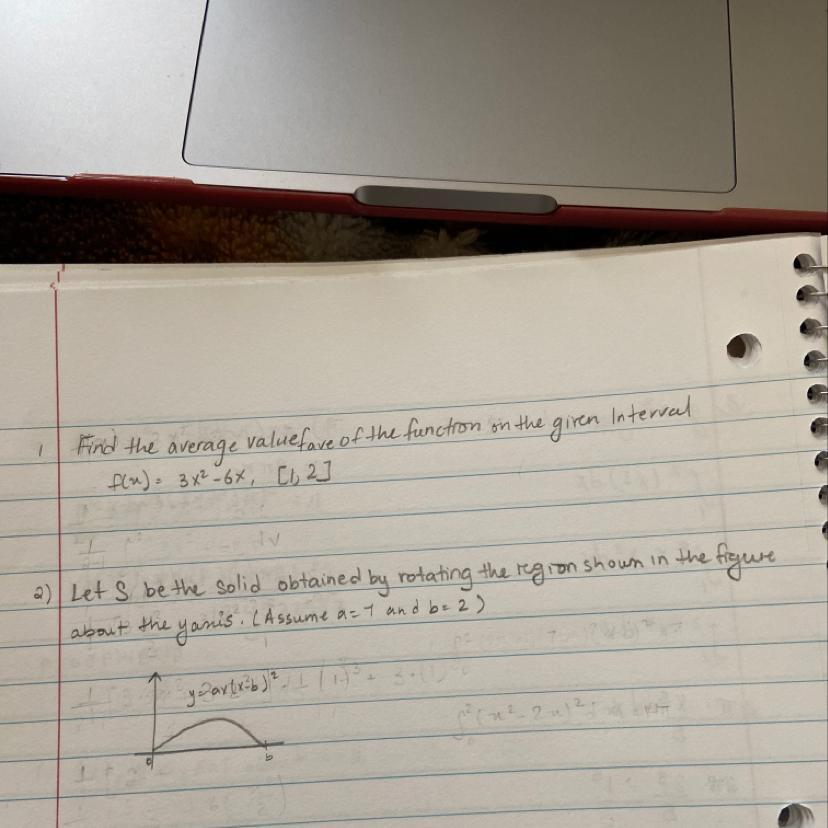 1 Find the average value fave of the function on the given Interval
f(x) = 3x² - 6x, [1, 2]
2) Let S be the solid obtained by rotating the region shown in the figure
about the yaxis. (Assume a = 7 and b = 2)
0
b